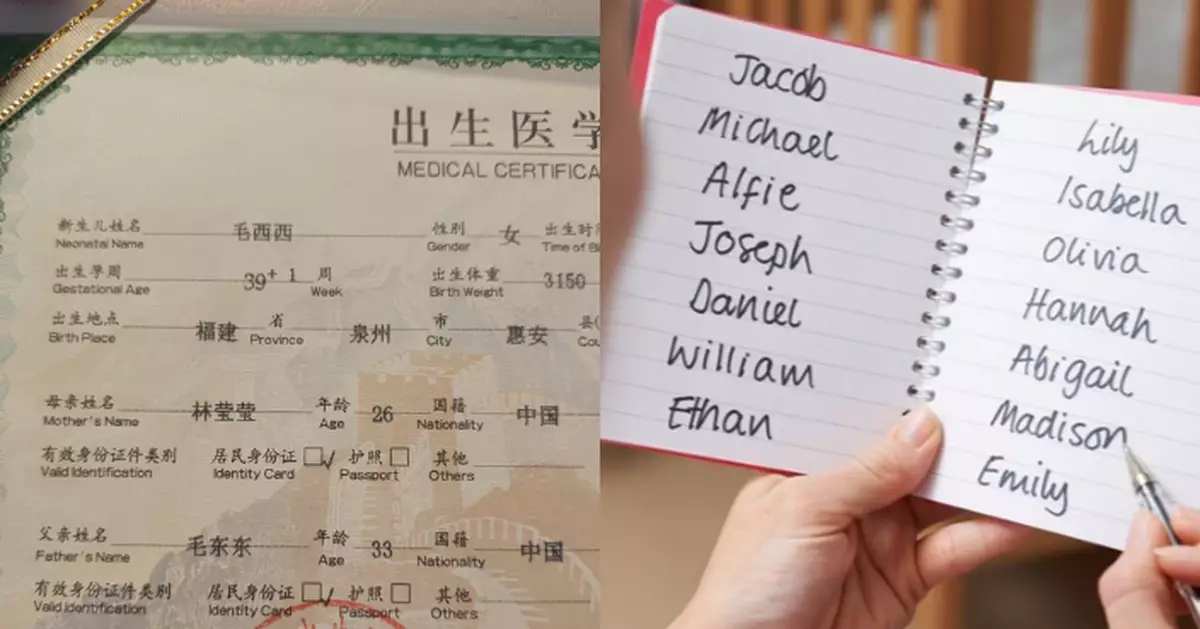 出生医学
MEDICAL CERTIFICA
新生儿姓名 毛西西 性别 女 出生时
Neonatal Name Gender Time of B
出生孕周 39+ 1 周 出生体重 3150
Gestational Age Week Birth Weight
出生地点 福建 省 泉州 市 惠安 县(
Birth Place Province City Cou
母亲姓名 林莹莹 年龄 26 国籍 中国
Mother's Name Age Nationality
有效身份证件类别 居民身份证 护照 其他
Valid Identification Identity Card Passport Others
父亲姓名 毛东东 年龄 33 国籍 中国
Father's Name Age Nationality
有效身份证件类别 居民身份证 护照 其他
Valid Identification Identity Card Passport Others
Jacob
Michael
Alfie
Joseph
Daniel
William
Ethan
Lily
Isabella
Olivia
Hannah
Abigail
Madison
Emily